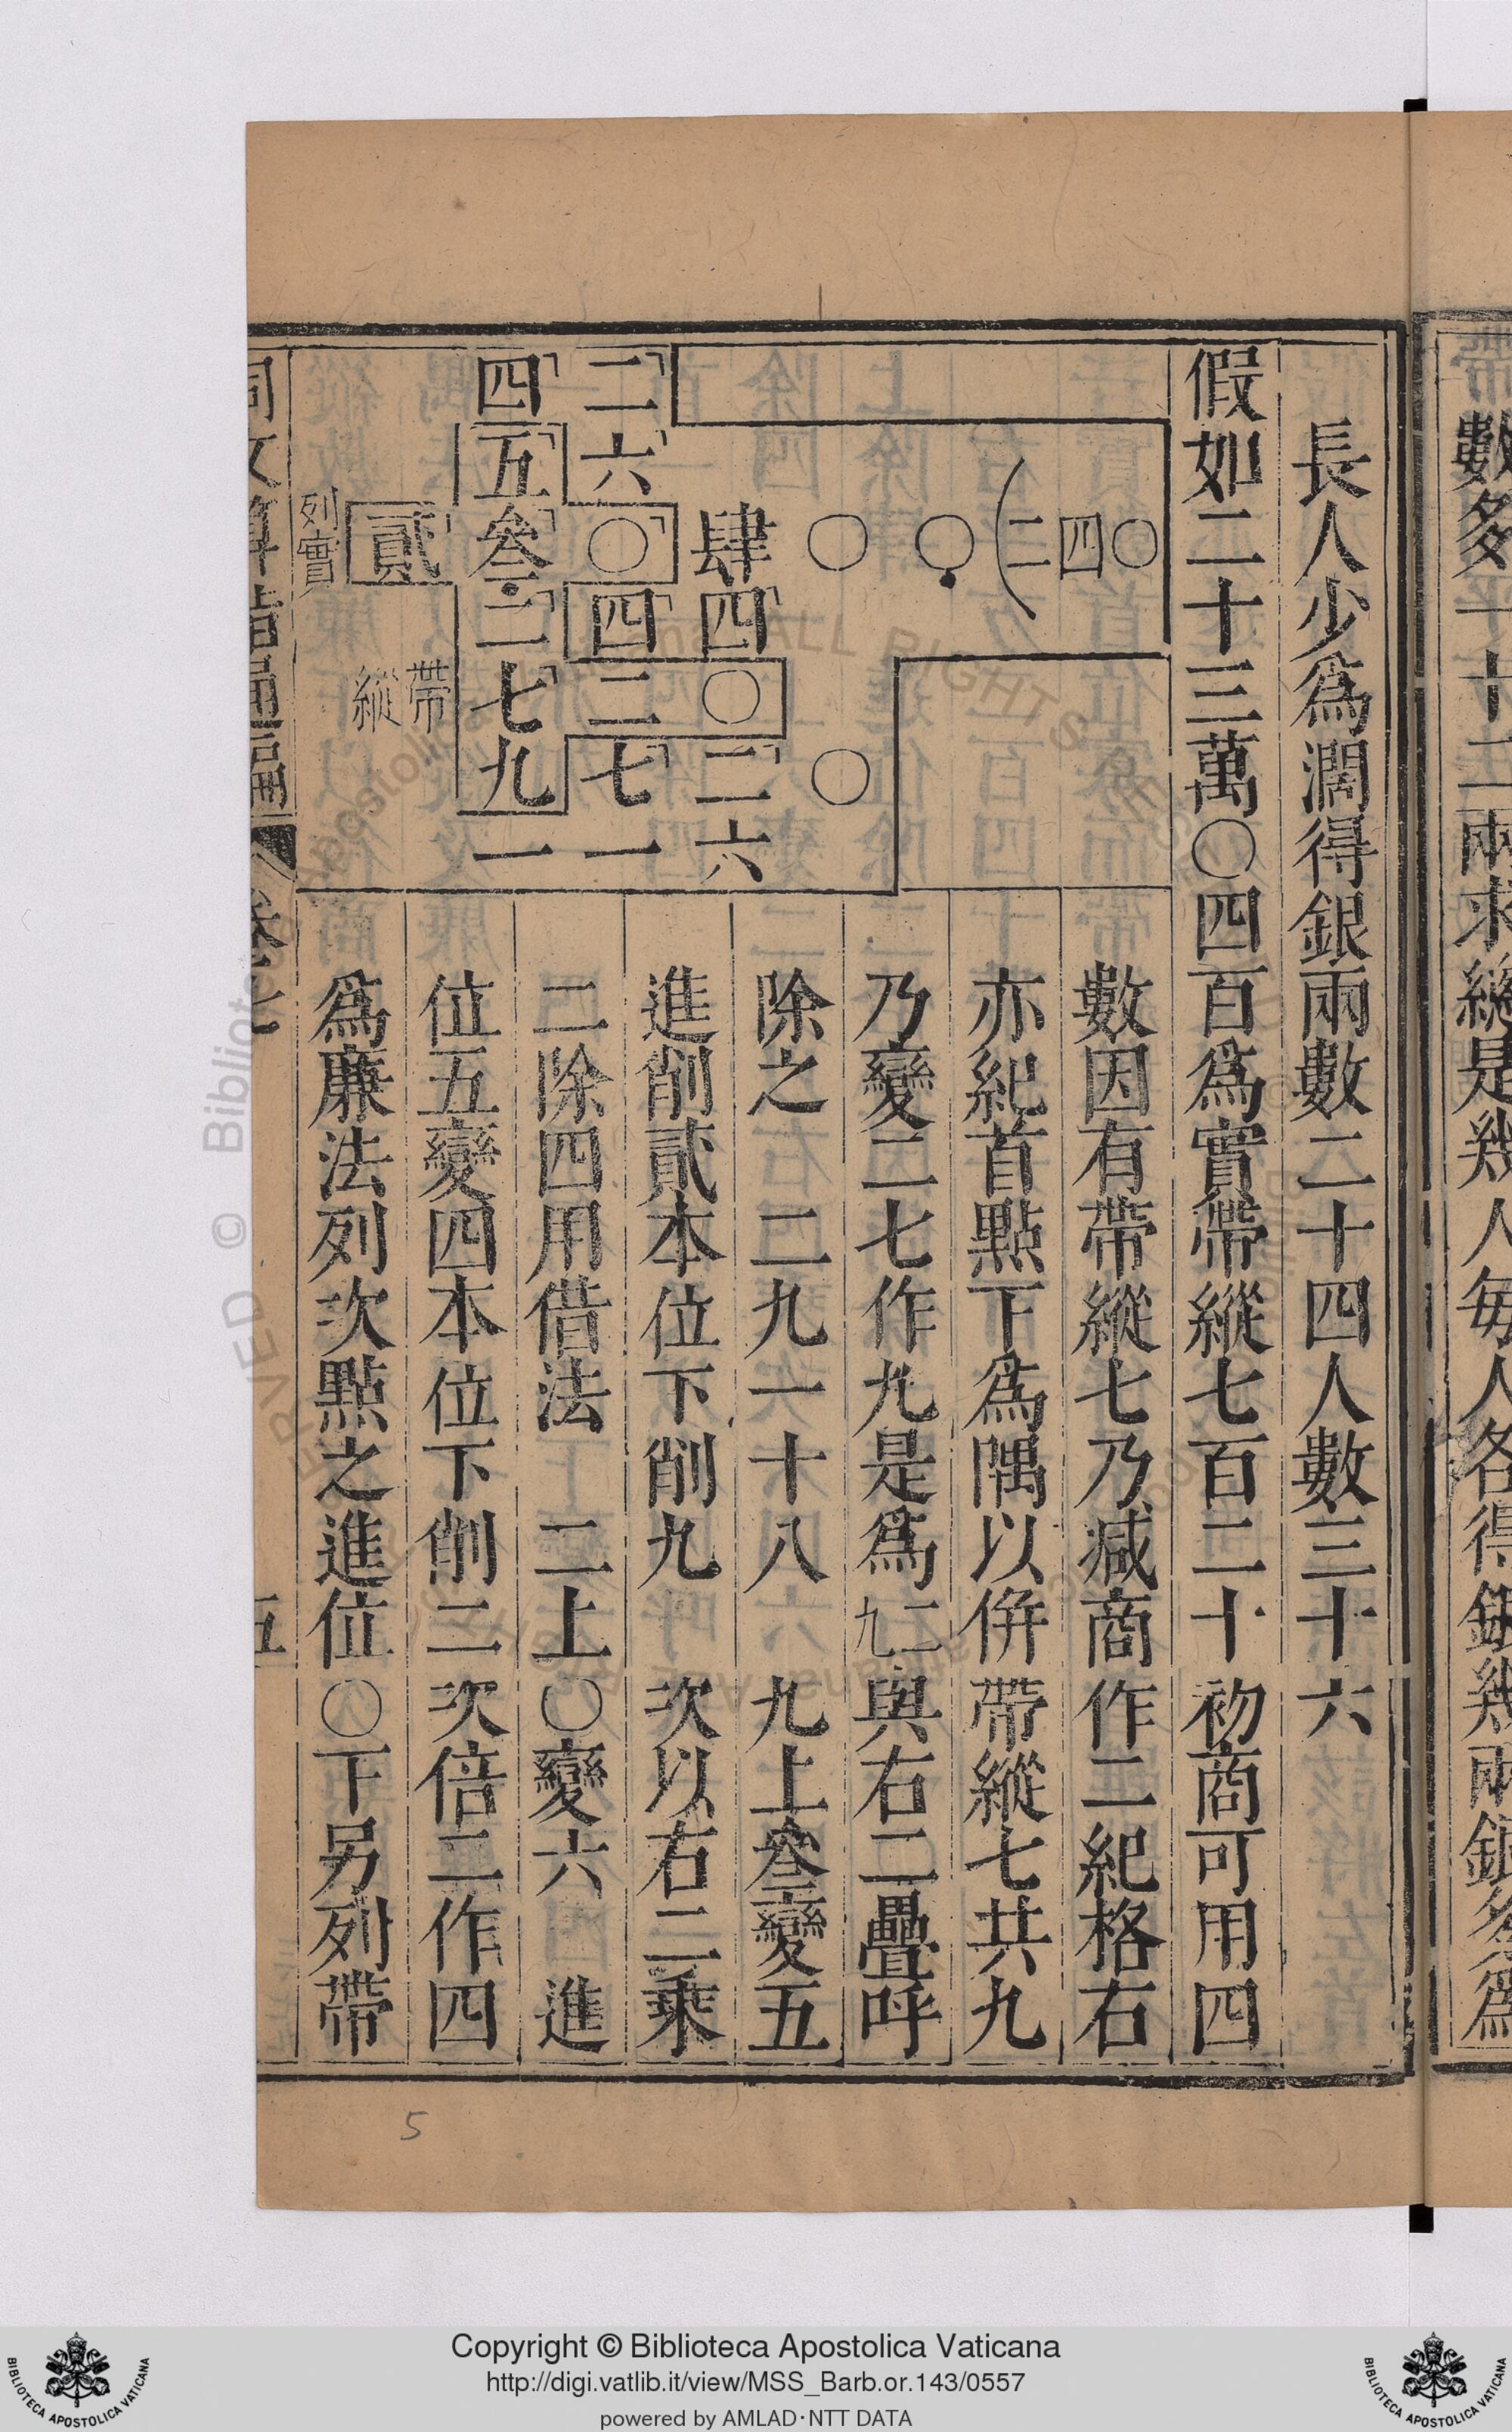 數多 十二兩求總是幾人每人各得銀幾兩銀多爲
長人少爲濶得銀兩數二十四人數三十六
假如二十三萬〇四百爲實帶縱七百二十 初商可用四
數因有帶縱七乃減商作二紀格右
亦紀首點下爲隅以併帶縱七共九
乃變二七作九是爲二九與右二疊呼
除之 二九一十八 九上叄變五
進削貳本位下削九 次以右二乘
二除四用借法 二上〇變六 進
位五變四本位下削二次倍二作四
爲廉法列次點之進位〇下另列帶
〇
四
二
〇
〇 〇
肆四〇二六
二六〇四二七一
四五叄二七九一
貳
帶
縱
列實
同文算指通編 卷七 五
5
© Biblioteca Apostolica
Copyright © Biblioteca Apostolica Vaticana
http://digi.vatlib.it/view/MSS_Barb.or.143/0557
powered by AMLAD·NTT DATA
BIBLIOTECA APOSTOLICA VATICANA
BIBLIOTECA APOSTOLICA VATICANA